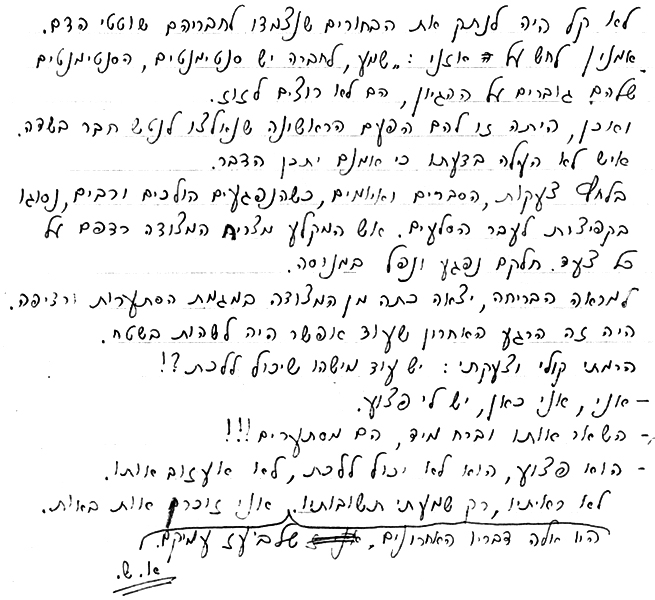 לא קל היה לנתק את הבחורים שנצמדו לחבריהם שוטטי הדם.
אמנין לחש על אוזני: "שמע, לחברה יש סנטימנטים, הסנטימנטים
שלהם גוברים על ההגיון, הם לא רוצים לזוז.
ואכן, היתה זו להם הפעם הראשונה שנאלצו לנטש חבר בשדה.
איש לא העלה בדעתו כי אמנם יתכן הדבר.
בלחץ צעקות, הסברים ואיומים, כשהנפגעים הולכים ורבים, נסוגו
בקפיצות לעבר הסלעים. אש המקלע מצריח המצודה רדפם על
כל צעד. חלקם נפגע ונפל במנוסה.
למראה הבריחה, יצאה כתה מן המצודה במגמת הסתערות ורציפה.
היה זה הרגע האחרון שעוד אפשר היה לשהות בשטח.
הרמתי קולי וצעקתי: יש עוד מישהו שיכול ללכת?!
- אני, אני כאן, יש לי פצוע.
- השאר אותו וברח מיד, הם מסתערים!!!
- הוא פצוע, הוא לא יכול ללכת, לא אעזוב אותו.
לא ראיתיו, רק שמעתי תשובותיו. אני זוכרם אות באות.
היו אלה דבריו האחרונים, של ביעז עמיקם.
א. ש.